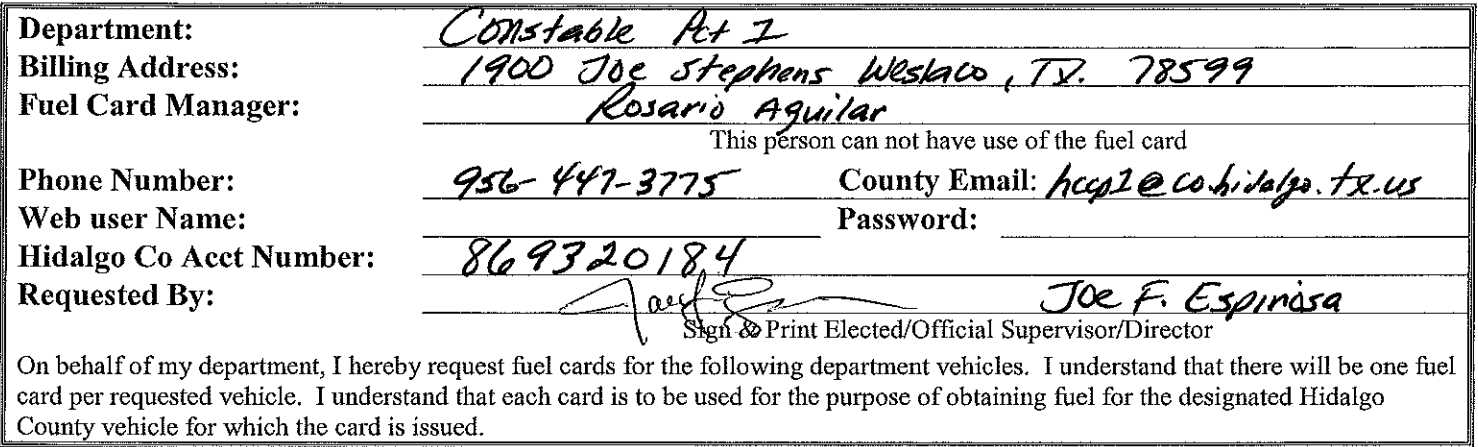 Department: Constable Pct 1
Billing Address: 1900 Joe Stephens Weslaco, TX. 78599
Fuel Card Manager: Rosario Aguilar
This person can not have use of the fuel card
Phone Number: 956-447-3775 County Email: hccp1@co.hidalgo.tx.us
Web user Name: Password:
Hidalgo Co Acct Number: 869320184
Requested By: Joe F. Espinosa
Sign & Print Elected/Official Supervisor/Director
On behalf of my department, I hereby request fuel cards for the following department vehicles. I understand that there will be one fuel
card per requested vehicle. I understand that each card is to be used for the purpose of obtaining fuel for the designated Hidalgo
County vehicle for which the card is issued.